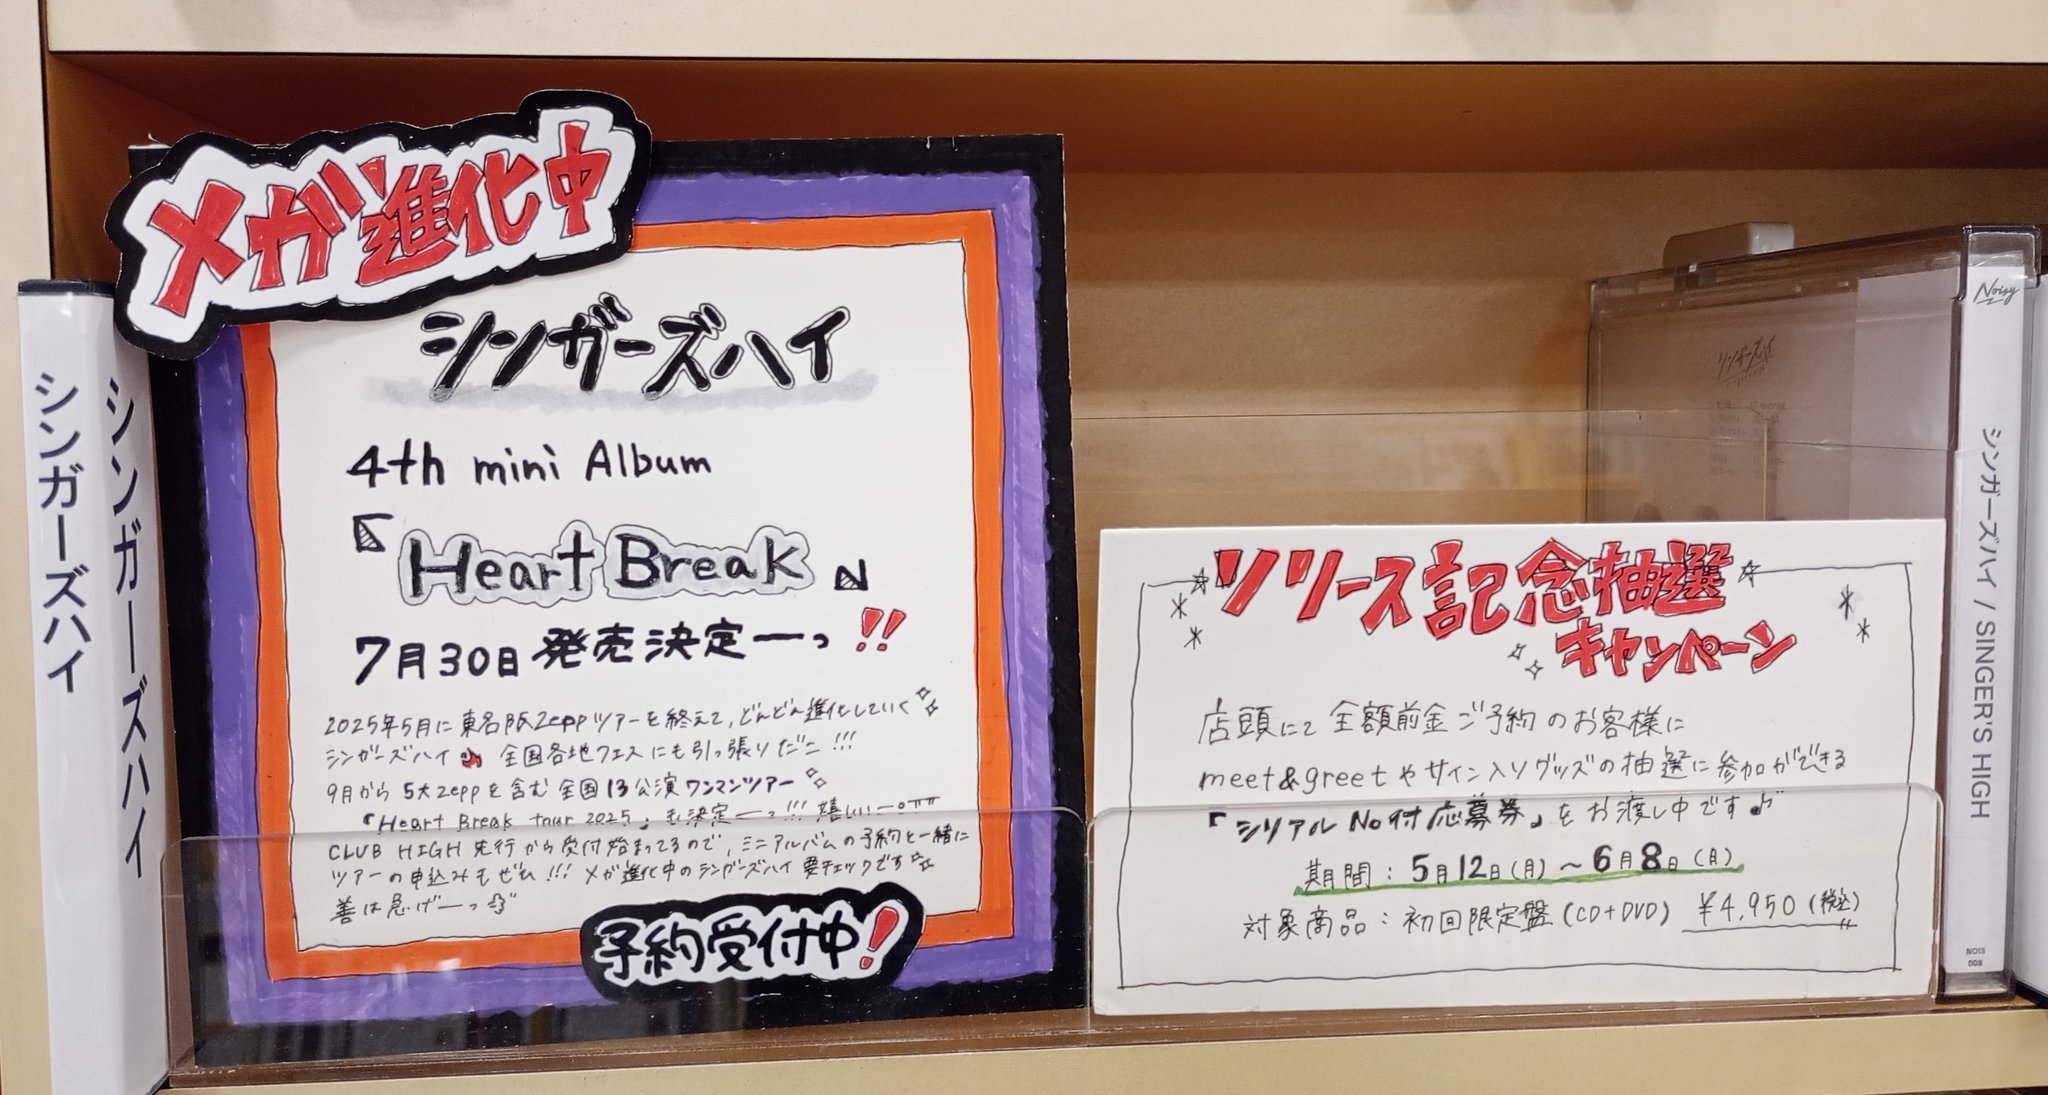 メガ進化中
シンガーズハイ
4th mini Album
『Heart Break』
7月30日発売決定ーっ!!
2025年5月に東名阪Zeppツアーを終えて、どんどん進化していく
シンガーズハイ 全国各地フェスにも引っ張りだこ!!!
9月から5大Zeppを含む全国13公演ワンマンツアー
「Heart Break tour 2025」も決定ーっ!!! 嬉しいー
CLUB HIGH 先行から受付始まってるので、ミニアルバムの予約と一緒に
ツアーの申込みもぜひ!!! メガ進化中のシンガーズハイ要チェックです
善は急げーっ
予約受付中!
リリース記念抽選
キャンペーン
店頭にて全額前金ご予約のお客様に
meet&greetやサイン入りグッズの抽選に参加ができる
「シリアルNo付応募券」をお渡し中です♪
期間:5月12日(月)~6月8日(月)
対象商品:初回限定盤(CD+DVD) ¥4,950(税込)
シンガーズハイ
シンガーズハイ
Noisy
シンガーズハイ / SINGER'S HIGH
NOIS
008
シンガーズハイ